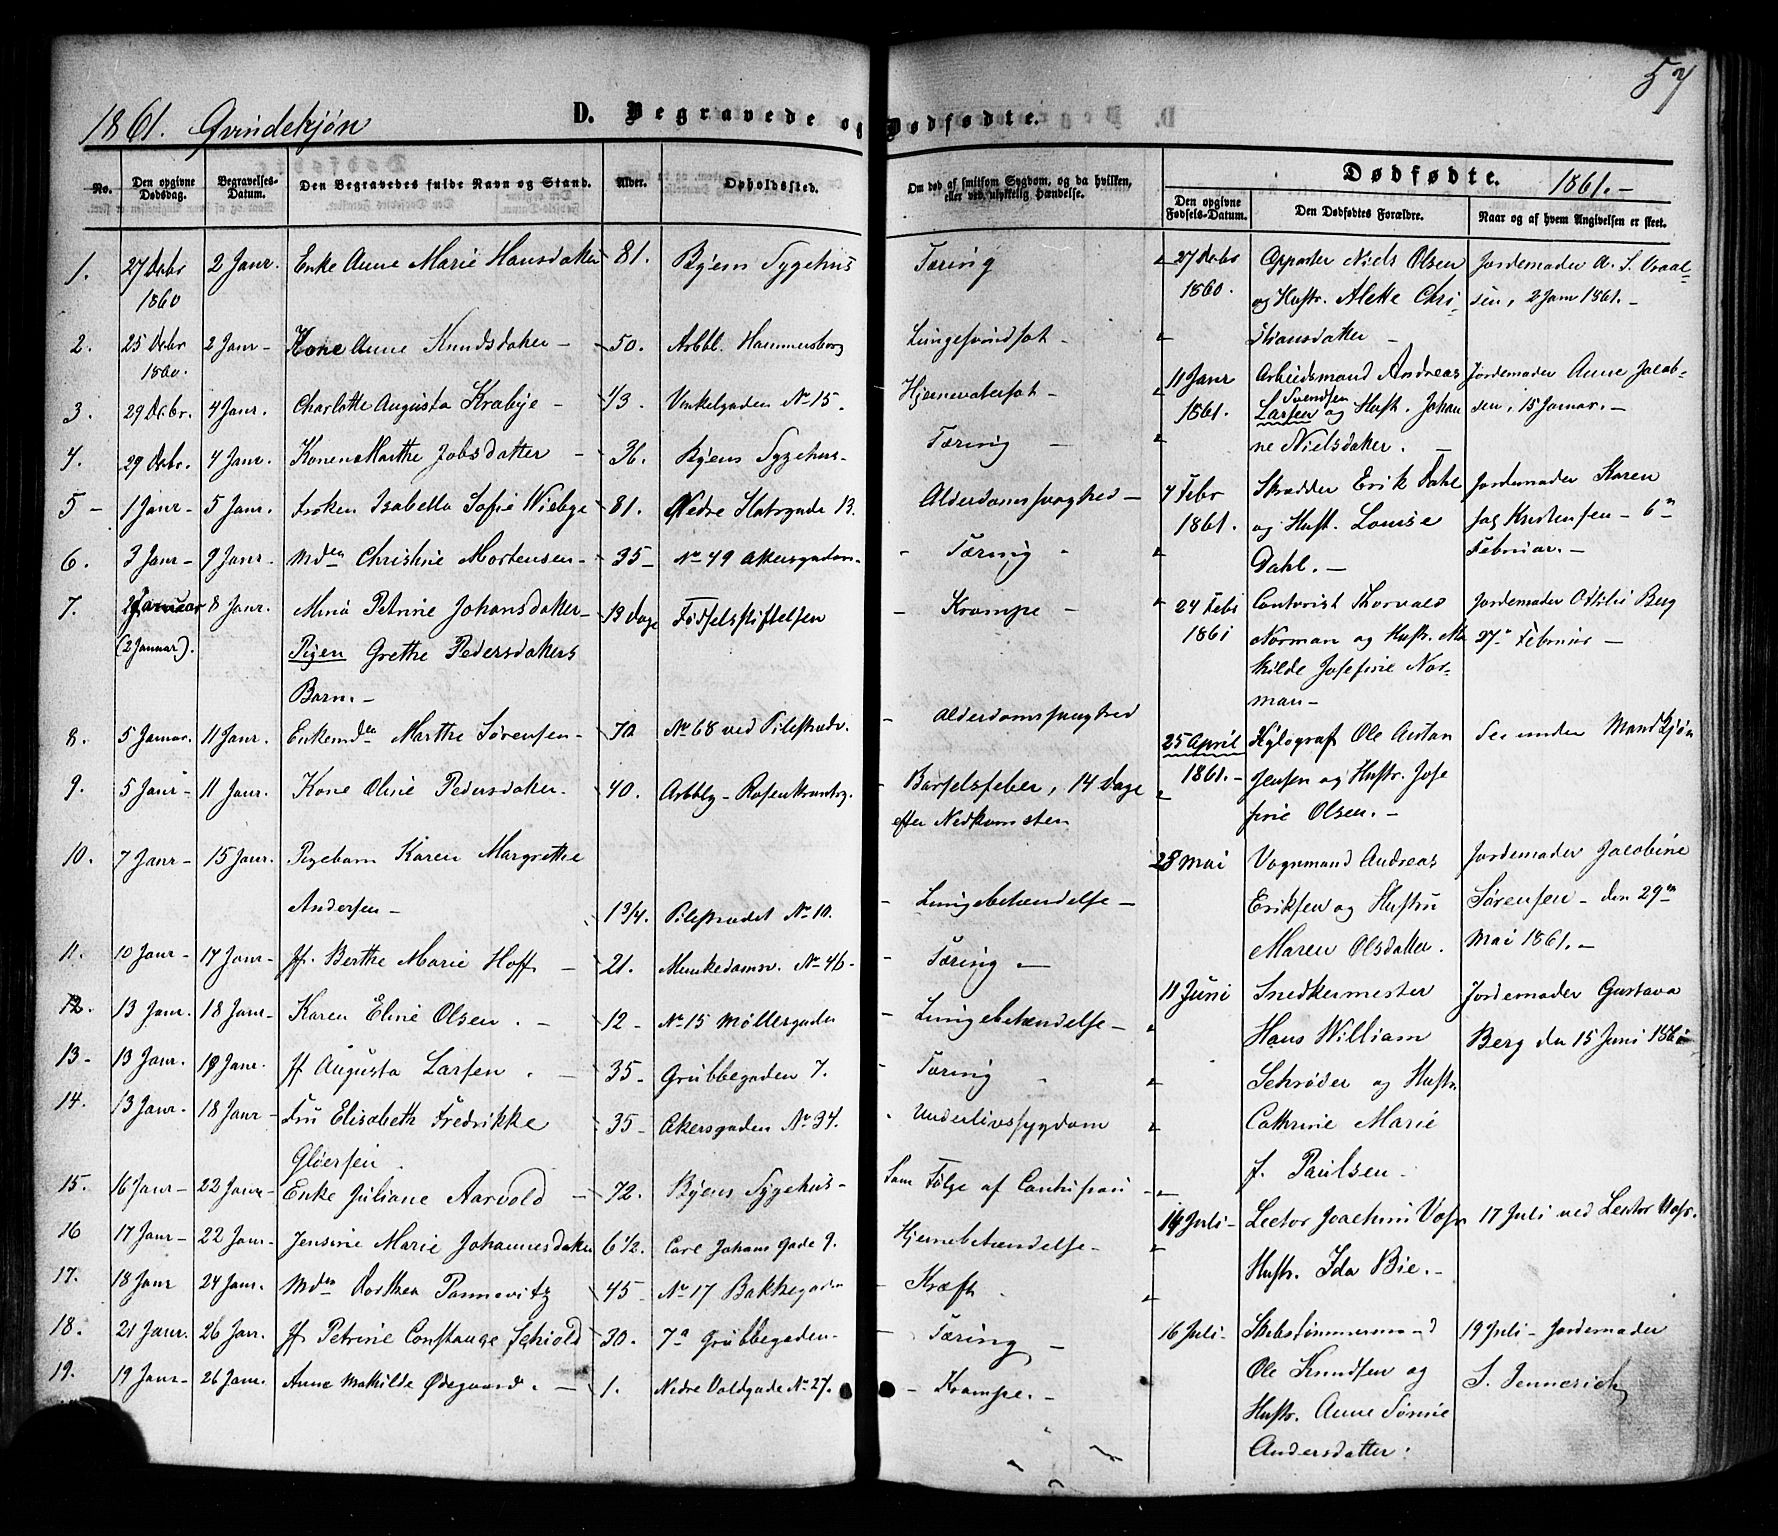 57
1861. Qvindekjøn
D. Begravede og Dødfødte.
No.
Den opgivne Dødsdag.
Begravelses-Datum.
Den Begravedes fulde Navn og Stand.
Alder.
Opholdssted.
Om død af smitsom Sygdom, og da hvilken, eller ved ulykkelig Hændelse.
Dødfødte. 1861.-
Den opgivne Fødsels-Datum.
Den Dødfødtes Forældre.
Naar og af hvem Angivelsen er skeet.
1. 27 Decbr 1860 2 Janr. Enke Anne Marie Hansdatter 81. Byens Sygehus Tæring
2. 25 Decbr 1860. 2 Janr - Kone Anne Knudsdatter - 50. Arbbl. Hammersborg Lungesvindsot -
3. 29 Decbr. 4 Janr. Charlotte Augusta Krabye - 1/3. Vinkelgaden No 15. Hjernevatersot -
4. 29 Decbr. 4 Janr. Konen Marthe Jobsdatter - 36. Byens Sygehus - Tæring -
5 - 1 Janr - 5 Janr. Frøken Isabella Sofie Wiebye 81. Nedre Slotsgade 13. Alderdomssvaghed -
6. 3 Janr - 9 Janr. Mden Christine Mortensen - 35 - No 49 Akersgaden - Tæring -
7. Januar (2 Januar). 8 Janr. Mina Petrine Johansdatter -
Pigen Grethe Pedersdatters
Barn. - 13 Dage Fødselsstiftelsen - Krampe -
8. 5 Januar. 11 Janr. Enkemden Marthe Sørensen - 70 No 68 ved Pilestræde. - Alderdomssvaghed
9. 5 Janr - 11 Janr. Kone Oline Pedersdatter - 40. Arbblg - Rosenkrantzg. - Barselsfeber, 14 Dage
efter Nedkomsten
10. 7 Janr - 15 Janr. Pigebarn Karen Margrethe
Andersen - 1 3/4. Pilestrædet No 10. - Lungebetændelse -
11. 10 Janr - 17 Janr - Jf. Berthe Marie Hoff - 21. Munkedamsv. No 46 - - Tæring -
12. 13 Janr. 18 Janr - Karen Eline Olsen. - 12 - No 15 Møllergaden - Lungebetændelse -
13 - 13 Janr. 18 Janr. Jf Augusta Larsen. - 35 - Grubbegaden 7. - Tæring
14. 13 Janr. 18 Janr - Fru Elisabeth Fredrikke
Gløersen 35 - Akersgaden No 34. Underlivssygdom
15. 16 Janr - 22 Janr - Enke Juliane Aarvold - 72. Byens Sygehus - Som Følge af Contusion -
16 17 Janr - 22 Janr - Jensine Marie Johannesdatter 6 1/2. Carl Johans Gade 9. Hjernebetændelse -
17. 18 Janr 24 Janr. Mden Dorthea Pannevitz 45 - No 17 Bakkegaden - Kræft
18. 21 Janr. 26 Jan. Jf Petrine Constance Schiold 30. 7a Grubbegaden - - Tæring -
19. 19 Janr - 26 Janr. Anne Mathilde Ødegaard. - 1. Nedre Voldgade No 27. - Krampe. -
27 Decbr 1860. Opparter Niels Olsen
og Hustr. Alette Chri-
stiansdatter - Jordemoder A. S. Vraal-
sen, 2 Janr 1861. -
11 Janr 1861. Arbeidsmand Andreas
Svendsen
Larsen og Hust. Johan
ne Nielsdatter. Jordemoder Anne Jacob-
sen, 15 Januar. -
4 Febr 1861. Skrædder Erik Dahl
og Hust. Louise
Dahl. - Jordemoder Karen
Kristensen - 6te
Februar. -
24 Febr 1861 Contorist Thorvald
Norman og Hustr. Ma
thilde Josefine Nor-
man - Jordemoder Ottilie Berg
27de Februar -
25 April 1861. - Xylograf Ole Austan
Jensen og Hustr. Jose
fine Olsen. - See under Mandkjøn
28 Mai Vognmand Andreas
Eriksen og Hustru
Maren Olsdatter. Jordemoder Jacobine
Sørensen - den 29de
Mai 1861. -
11 Juni Snedkermester
Hans William
Schrøder og Hustr.
Cathrine Marie
f. Paulsen - Jordemoder Gustava
Berg den 15 Juni 1861
14 Juli - Lector Joachim Vos
Hustr. Ida Bie. - 17 Juli ved Lector Vos.
16 Juli - Skibstømmermand
Ole Knudsen og
Hustr. Anne Sørine
Andersdatter. 19 Juli - Jordemoder
S. Jennerich